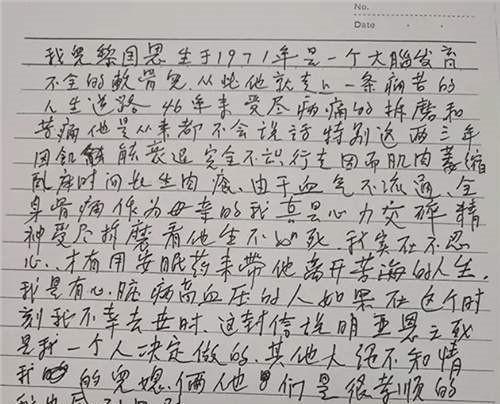 No.
Date
我兒黎国恩生于1971年是一个大腦发育
不全的軟骨兒.从此他就走上一条痛苦的
人生道路46年来受尽病痛的折磨和
苦痛他是从来都不会说话特别这两三年
因肌 能衰退完全不能行走因而肌肉萎缩
臥床时间长生肉瘡.由于血气不流通.全
身骨痛作为母亲的我真是心力交碎精
神受尽折磨看他生不如死.我实在不忍
心.才有用安眠药来带他离开苦海的人生.
我是有心脏病高血压的人如果在这个时
刻我不幸去世时.这封信说明 恩之死
是我一个人决定做的.其他人绝不知情
我 的兒媳.俩他 们是很孝順的